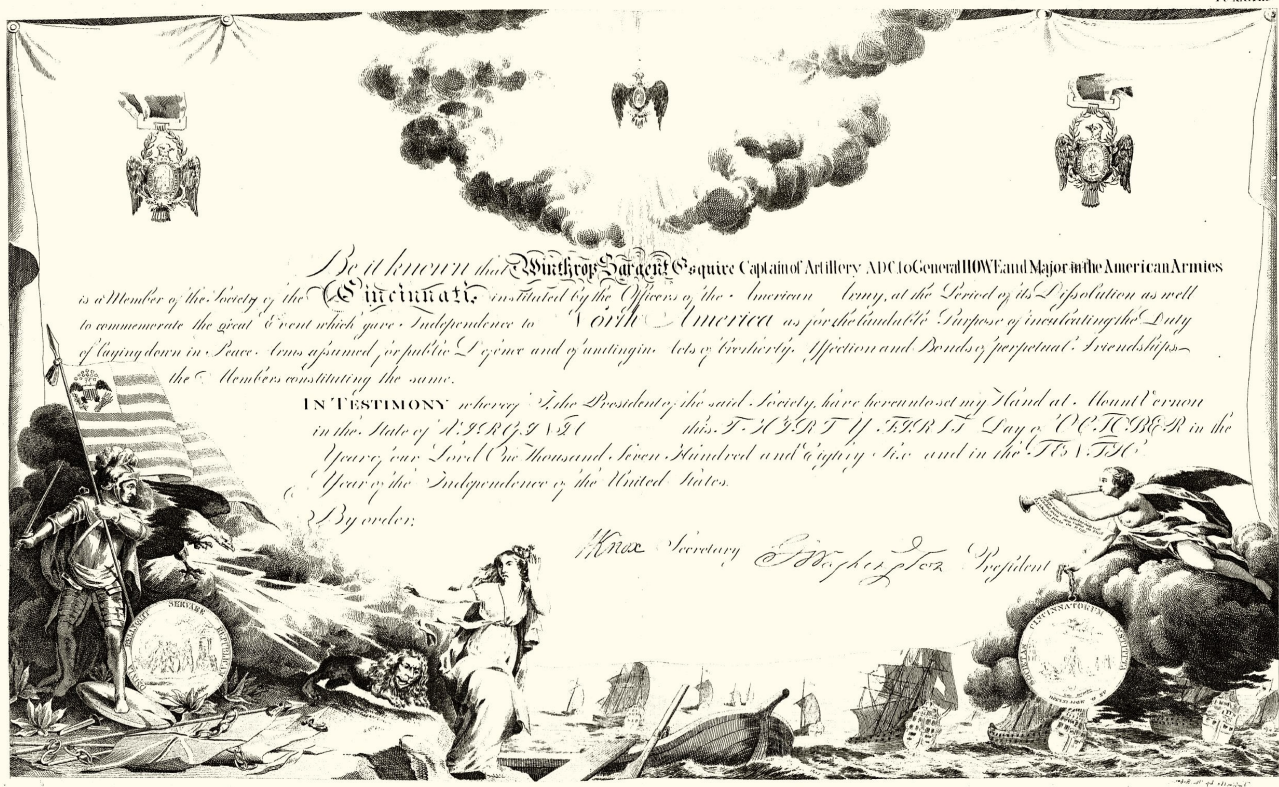 Be it known that Winthrop Sargent Esquire Captain of Artillery ADC. to General HOWE and Major in the American Armies
is a Member of the Society of the Cincinnati, instituted by the Officers of the American Army, at the Period of its Dissolution as well
to commemorate the great Event which gave Independence to North America as for the laudable Purpose of inculcating the Duty
of laying down in Peace Arms assumed for public Defence and of uniting in Acts of brotherly Affection and Bonds of perpetual Friendships
the Members constituting the same.
IN TESTIMONY whereof I, the President of the said Society, have hereunto set my Hand at Mount Vernon
in the State of VIRGINIA this THIRTY FIRST Day of OCTOBER in the
Year of our Lord One Thousand Seven Hundred and Eighty Six and in the TENTH
Year of the Independence of the United States.
By order,
HKnox Secretary GWashington President
SERVARE
CINCINNATORUM